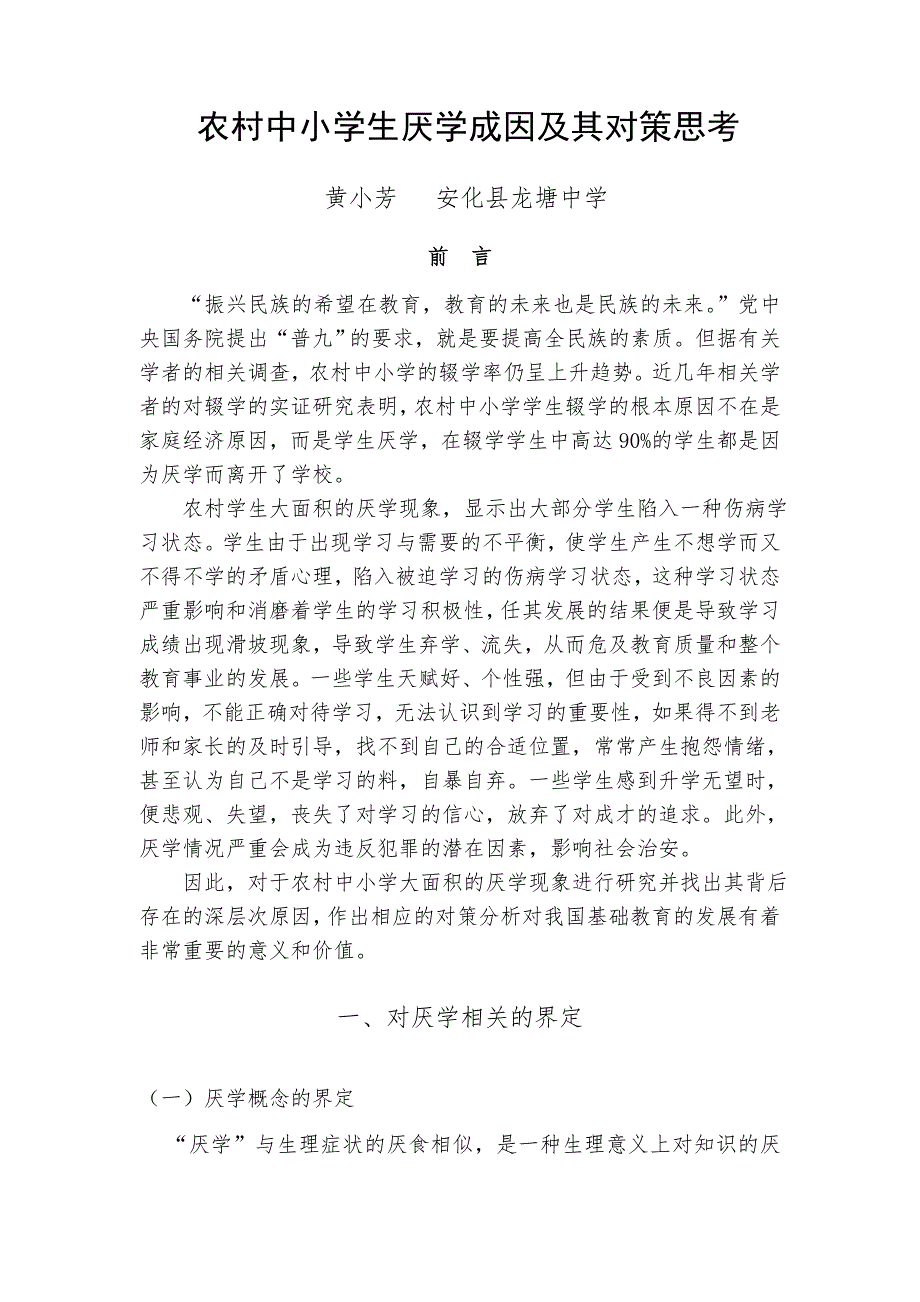 农村中小学生厌学成因及其对策思考
黄小芳 安化县龙塘中学
前 言
“振兴民族的希望在教育，教育的未来也是民族的未来。”党中
央国务院提出“普九”的要求，就是要提高全民族的素质。但据有关
学者的相关调查，农村中小学的辍学率仍呈上升趋势。近几年相关学
者的对辍学的实证研究表明，农村中小学学生辍学的根本原因不在是
家庭经济原因，而是学生厌学，在辍学学生中高达 90%的学生都是因
为厌学而离开了学校。
农村学生大面积的厌学现象，显示出大部分学生陷入一种伤病学
习状态。学生由于出现学习与需要的不平衡，使学生产生不想学而又
不得不学的矛盾心理，陷入被迫学习的伤病学习状态，这种学习状态
严重影响和消磨着学生的学习积极性，任其发展的结果便是导致学习
成绩出现滑坡现象，导致学生弃学、流失，从而危及教育质量和整个
教育事业的发展。一些学生天赋好、个性强，但由于受到不良因素的
影响，不能正确对待学习，无法认识到学习的重要性，如果得不到老
师和家长的及时引导，找不到自己的合适位置，常常产生抱怨情绪，
甚至认为自己不是学习的料，自暴自弃。一些学生感到升学无望时，
便悲观、失望，丧失了对学习的信心，放弃了对成才的追求。此外，
厌学情况严重会成为违反犯罪的潜在因素，影响社会治安。
因此，对于农村中小学大面积的厌学现象进行研究并找出其背后
存在的深层次原因，作出相应的对策分析对我国基础教育的发展有着
非常重要的意义和价值。
一、对厌学相关的界定
（一）厌学概念的界定
“厌学”与生理症状的厌食相似，是一种生理意义上对知识的厌